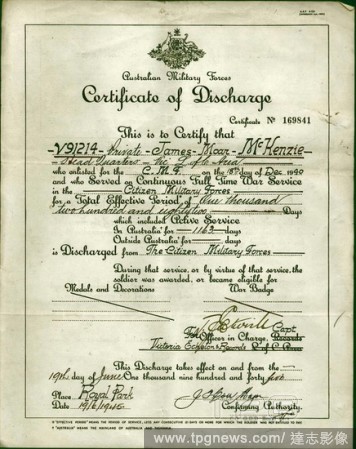 Australian Military Forces
Certificate of Discharge
Certificate No 169841
This is to Certify that
V91214 Private James Moar McKenzie
Head Quarters Vic L of C Area
who enlisted for the C.M.F. on the 18th day of Dec 1940
and who Served on Continuous Full Time War Service
in the Citizen Military Forces
for a Total Effective Period of One thousand
two hundred and eighty two Days
which included Active Service
In Australia for 1162 days
Outside Australia for days
is Discharged from The Citizen Military Forces
During that service, or by virtue of that service, the
soldier was awarded, or became eligible for
Medals and Decorations War Badge
Capt
Officer in Charge, Records
Victoria Echelon & Records
This Discharge takes effect on and from the
19th day of June One thousand nine hundred and forty five
Place Royal Park
Date 19/6/1945 Confirming Authority
www.tpgnews.com / 達志影像